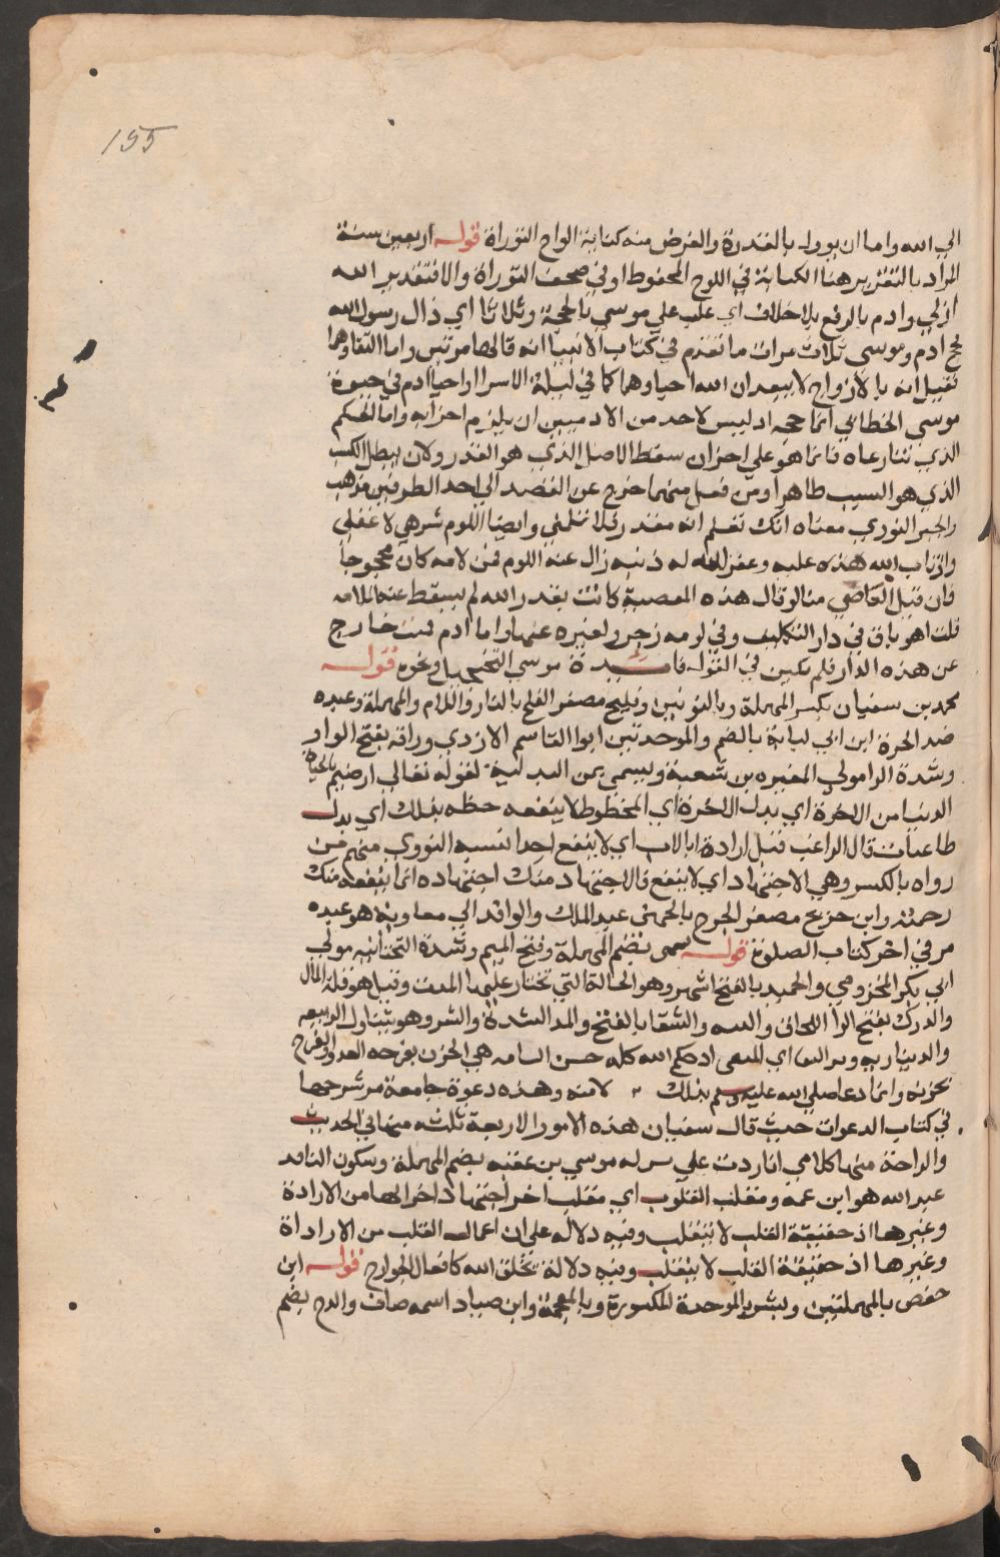 155
الي الله واما ان يوول بالقدرة والغرض منه كتابة الواح التوراة قوله اربعين سنة
المراد بالتقدير هنا الكتابة في اللوح المحفوظ او في صحف التوراة والا فتقدير الله
ازلي وادم بالرفع بلا خلاف اي غلب علي موسي بالحجة وثلاثا اي قال رسول الله
حج ادم وموسي ثلاث مرات ما تقدم في كتاب الانبيا انه قالها مرتين واما التقاوهما
فقيل انه بالارواح لا يبعد ان الله احياهما كما في ليلة الاسرا او احيا ادم في حيوة
موسي الخطابي انما حجه اذ ليس لاحد من الادميين ان يلزم اخر به واما الحكم
الذي تنازعاه فانما هو علي احزان سقط الاصل الذي هو القدر ولان يبطل الكسب
الذي هو السبب ظاهرا ومن فعل منهما خرج عن القصد الي احد الطرفين مذهب
والجبر النووي معناه انك تعلم انه مقدر فلا تلمني وايضا اللوم شرعي لا عقلي
واذ تاب الله هذه عليه وغفر الله له ذنبه زال عنه اللوم فمن لامه كان محجوجا
فان قيل العاصي منا لو قال هذه المعصية كانت بقدر الله لم يسقط عنه الملامه
قلت هو باق في دار التكليف وفي لومه زجر ولغيره عنها واما ادم فميت خارج
عن هذه الدار فلم يكن في القول فايدة موسي التخجيل ونحوه قوله
محمد بن سفيان بكسر المهملة وبالنونين وفليح مصغر الفلح بالفا واللام والمهملة وعبده
ضد الحرة ابن ابي لبابة بالضم والموحدتين ابو القاسم الازدي وراد بفتح الواو
وشدة الرا مولي المغيره بن شعبة ويسمي بمن البدلية لقوله تعالي ارضيتم بالحياة
الدنيا من الاخرة اي بدل الاخرة اي المحظوظ لا ينفعه حظه بذلك اي بدل
طاعتك قال الراغب قيل اراد به ابا الاب اي لا ينفع احدا نسبه النووي منهم من
رواه بالكسر وهي الاجتهاد اي لا ينفع ذا الاجتهاد منك اجتهاده انما ينفعه منك
رحمته وابن جريج مصغر الجرح بالجيمين عبد الملك والوافد الي معاوية هو عبده
مر في اخر كتاب الصلوة قوله سمي بضم المهملة وفتح الميم وشدة التحتانيه مولي
ابي بكر المخزومي والجهد بالفتح اشهر وهو الحالة التي تختار عليها الموت وقيل هو قلة المال
والدرك بفتح الرا اللحاق والسه والشقا بالفتح والمد الشدة والشر وهو يتناول الدينيه
والدنياويه اي المقضي اذ حكم الله كله حسن الشماته هي الحزن بفرحه العدو والفرح
بحزنه وانما دعا صلي الله عليه وسلم بذلك لامته وهذه دعوة جامعة مر شرحها
في كتاب الدعوات حيث قال سفيان هذه الامور الاربعة ثلثه منها في الحديث
والواحدة منها كلامي انا زدت علي موسي بن عقبه بضم المهملة وسكون القاف
عبد الله هو ابن عمه ومقلب القلوب اي مقلب اخر اجتهاد اخر الها من الارادة
وغيرها اذ حقيقة القلب لا تنقلب وفيه دلاله علي ان اعمال القلب من الاراداة
وغيرها اذ حقيقة القلب لا ينقلب وفيه دلالة بخلق الله كافعال الجوارح قوله ابن
حفص بالمهملتين وبشر بالموحدة المكسورة وبالمعجمة وابن صياد اسمه صاف والدخ بضم